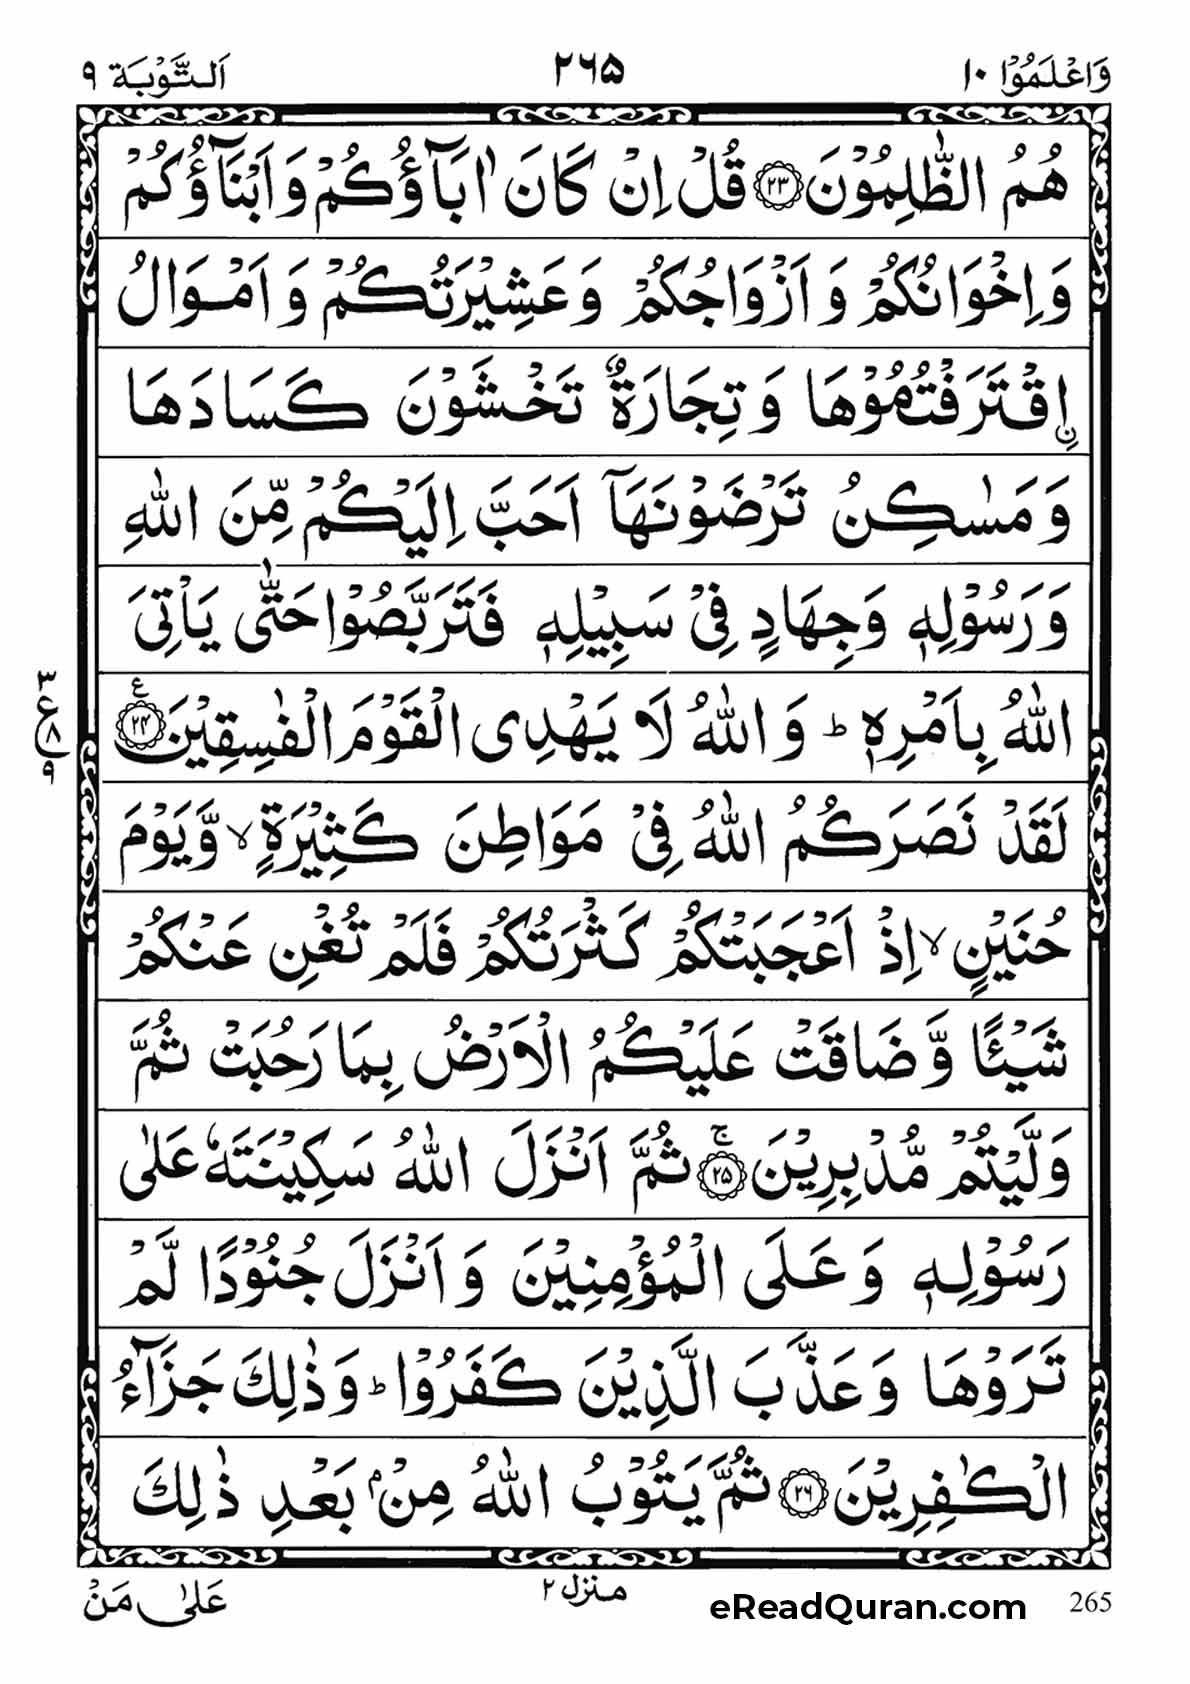 وَاعْلَمُوْا ١٠ ٢٦٥ اَلتَّوْبَة ٩
هُمُ الظّٰلِمُوْنَ ﴿۲۳﴾ قُلْ اِنْ كَانَ اٰبَآؤُكُمْ وَاَبْنَآؤُكُمْ
وَاِخْوَانُكُمْ وَ اَزْوَاجُكُمْ وَ عَشِيْرَتُكُمْ وَ اَمْوَالُ
اۨقْتَرَفْتُمُوْهَا وَ تِجَارَةٌ تَخْشَوْنَ كَسَادَهَا
وَ مَسٰكِنُ تَرْضَوْنَهَاۤ اَحَبَّ اِلَيْكُمْ مِّنَ اللّٰهِ
وَ رَسُوْلِهٖ وَ جِهَادٍ فِيْ سَبِيْلِهٖ فَتَرَبَّصُوْا حَتّٰى يَاْتِيَ
اللّٰهُ بِاَمْرِهٖ ؕ وَ اللّٰهُ لَا يَهْدِى الْقَوْمَ الْفٰسِقِيْنَ ﴿۲۴﴾ ع
٣ ع ٨ ٩
لَقَدْ نَصَرَكُمُ اللّٰهُ فِيْ مَوَاطِنَ كَثِيْرَةٍ ۙ وَّ يَوْمَ
حُنَيْنٍ ۙ اِذْ اَعْجَبَتْكُمْ كَثْرَتُكُمْ فَلَمْ تُغْنِ عَنْكُمْ
شَيْـًٔا وَّ ضَاقَتْ عَلَيْكُمُ الْاَرْضُ بِمَا رَحُبَتْ ثُمَّ
وَلَّيْتُمْ مُّدْبِرِيْنَ ۚ﴿۲۵﴾ ثُمَّ اَنْزَلَ اللّٰهُ سَكِيْنَتَهٗ عَلٰى
رَسُوْلِهٖ وَ عَلَى الْمُؤْمِنِيْنَ وَ اَنْزَلَ جُنُوْدًا لَّمْ
تَرَوْهَا وَ عَذَّبَ الَّذِيْنَ كَفَرُوْا ؕ وَ ذٰلِكَ جَزَآءُ
الْكٰفِرِيْنَ ﴿۲۶﴾ ثُمَّ يَتُوْبُ اللّٰهُ مِنْۢ بَعْدِ ذٰلِكَ
عَلٰى مَنْ
منزل ٢
eReadQuran.com 265